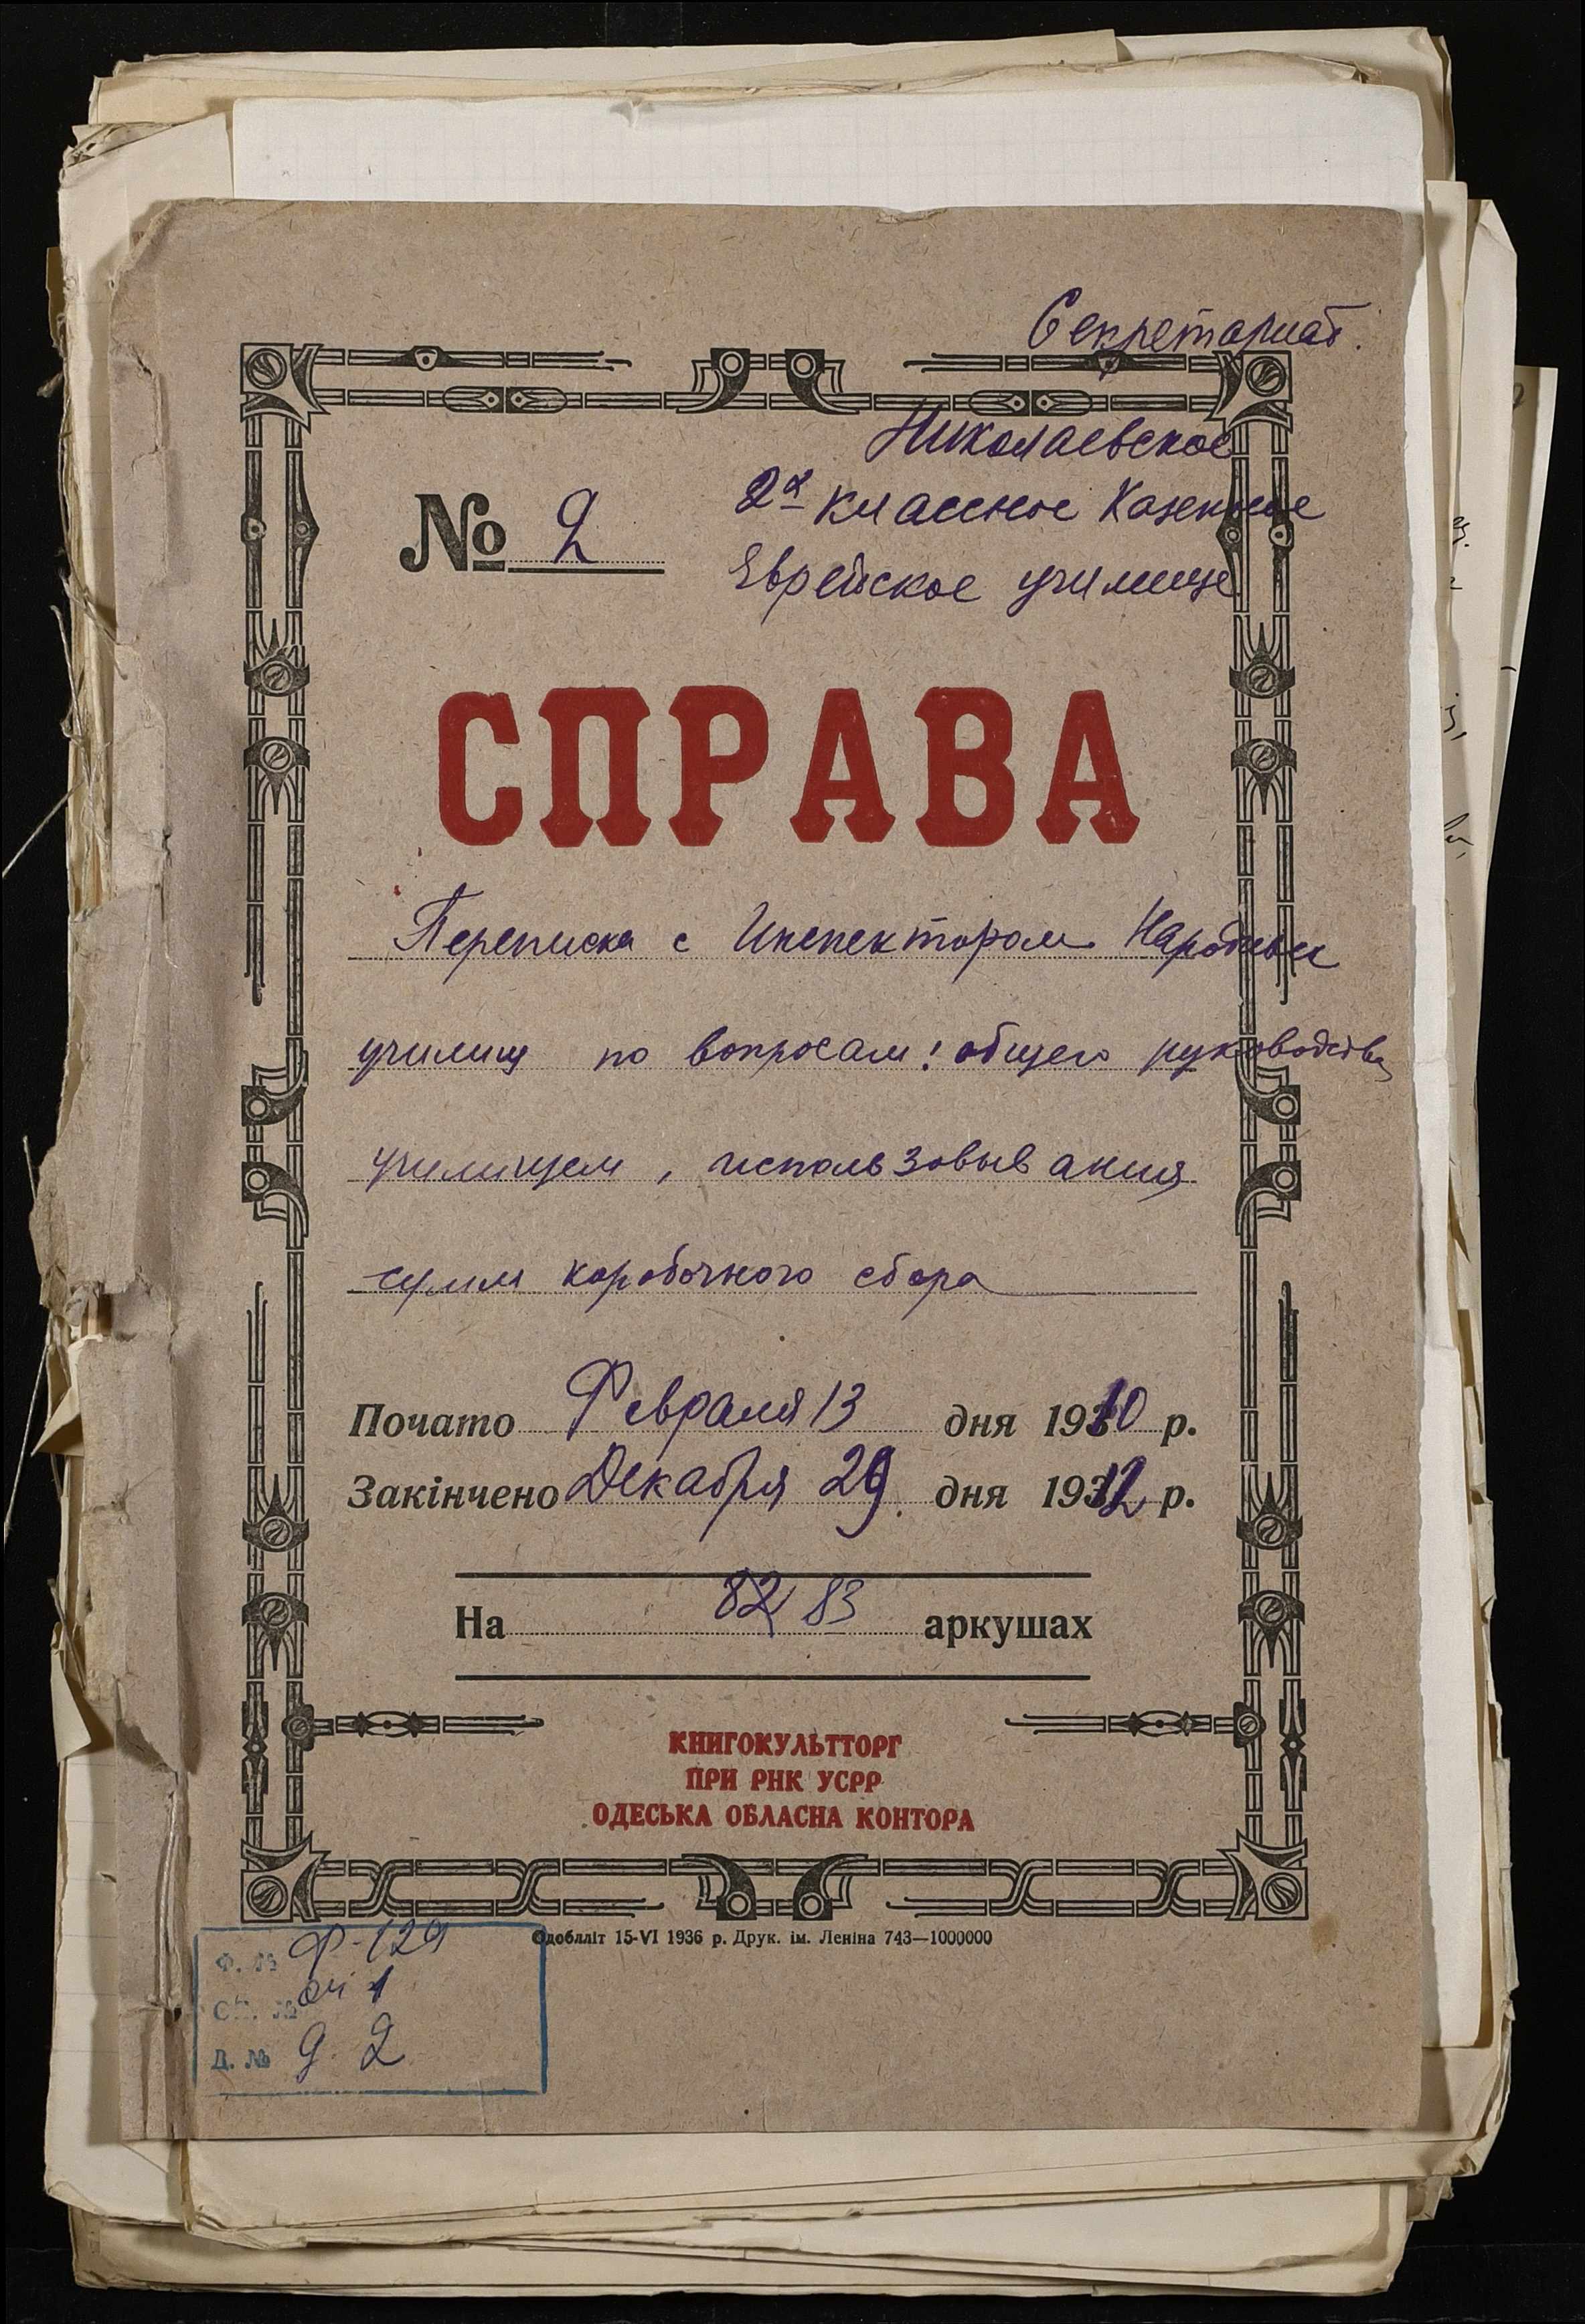 Секретариат.
Николаевское
№ 2
2х классное Казенное
Еврейское училище
СПРАВА
Переписка с Инспектором Народных
училищ по вопросам: общего руководства
училищем, использовывания
сумм коробочного сбора
Почато Февраля 13 дня 1910 р.
Закінчено Декабря 29 дня 1912 р.
На 82 83 аркушах
КНИГОКУЛЬТТОРГ
ПРИ РНК УСРР
ОДЕСЬКА ОБЛАСНА КОНТОРА
Одоблліт 15-VI 1936 р. Друк. ім. Леніна 743—1000000
Ф. № Ф-129
Оп. № оп 1
Д. № д. 2